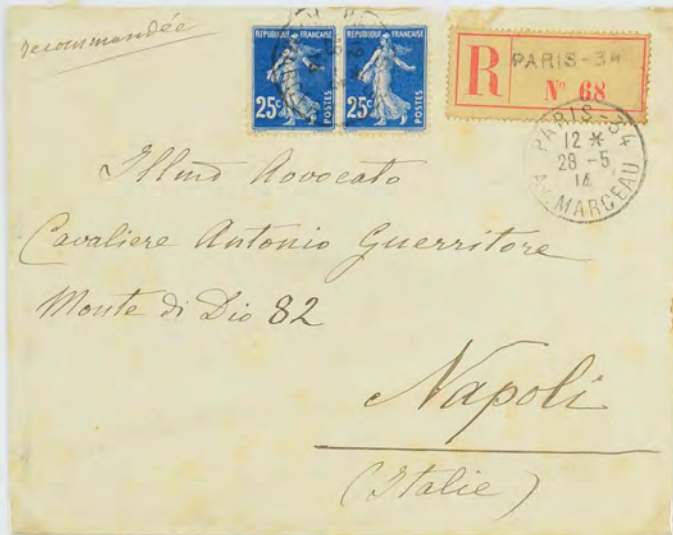 recommandée
REPUBLIQUE FRANÇAISE
25c POSTES
REPUBLIQUE FRANÇAISE
25c POSTES
R PARIS-34
N° 68
PARIS-34
12 *
28 -5
14
Av. MARCEAU
Illmo Avvocato
Cavaliere Antonio Guerritore
Monte di Dio 82
Napoli
(Italie)